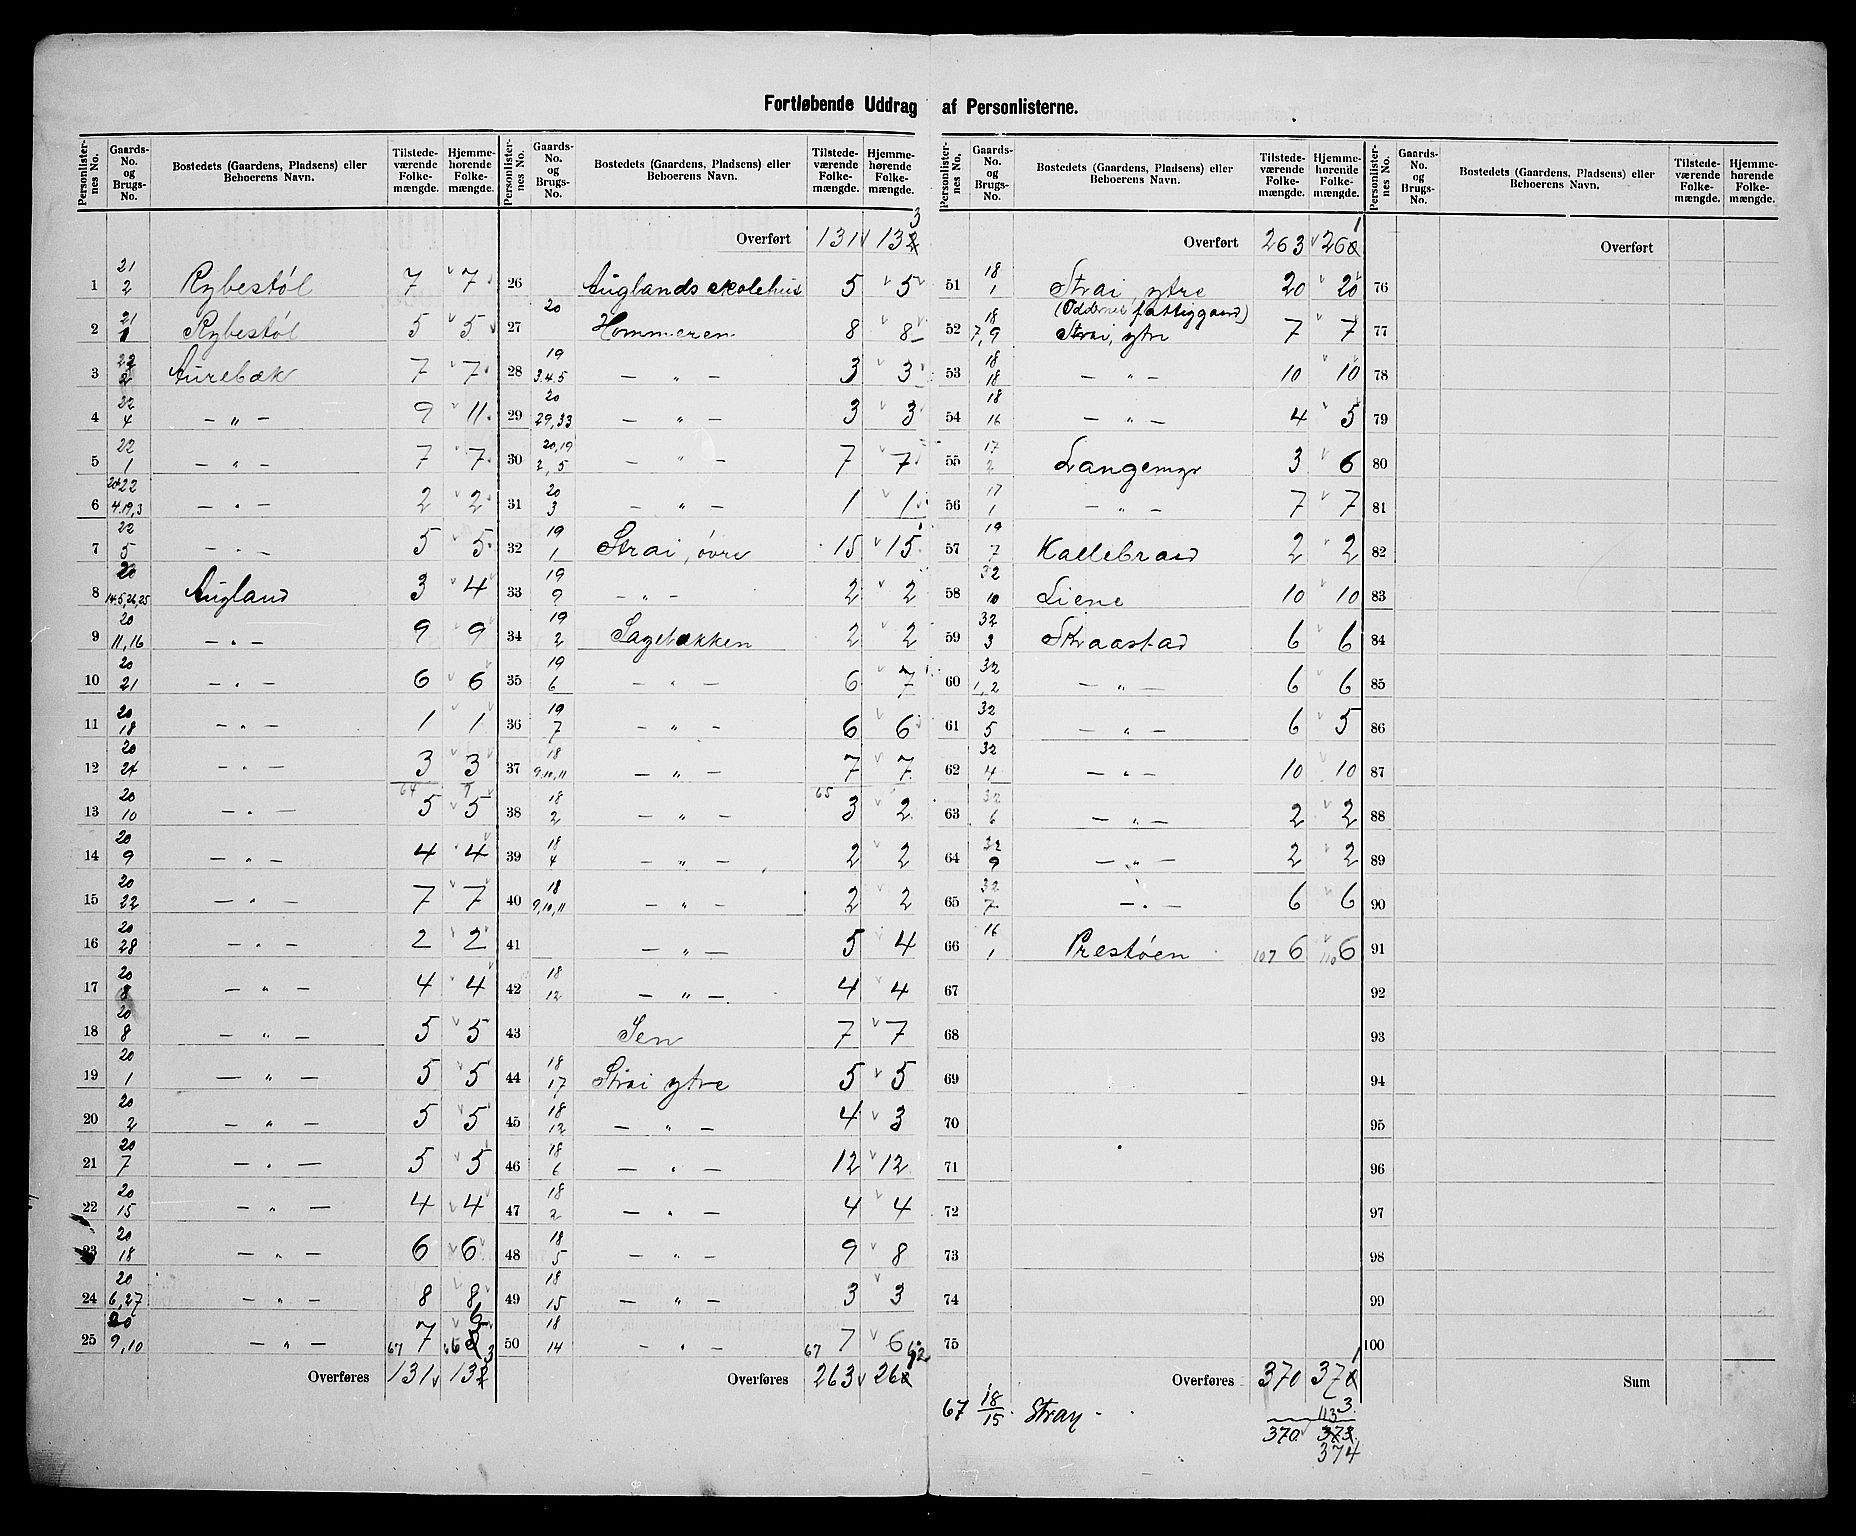 Fortløbende Uddrag af Personlisterne.
Personlisternes No. | Gaards-No. og Brugs-No. | Bostedets (Gaardens, Pladsens) eller Beboerens Navn. | Tilstedeværende Folkemængde. | Hjemmehørende Folkemængde.
Personlisternes No. | Gaards-No. og Brugs-No. | Bostedets (Gaardens, Pladsens) eller Beboerens Navn. | Tilstedeværende Folkemængde. | Hjemmehørende Folkemængde.
Personlisternes No. | Gaards-No. og Brugs-No. | Bostedets (Gaardens, Pladsens) eller Beboerens Navn. | Tilstedeværende Folkemængde. | Hjemmehørende Folkemængde.
Personlisternes No. | Gaards-No. og Brugs-No. | Bostedets (Gaardens, Pladsens) eller Beboerens Navn. | Tilstedeværende Folkemængde. | Hjemmehørende Folkemængde.
1 21/2 Rybestøl 7 7
2 21/1 Rybestøl 5 5
3 22/2 Aurebæk 7 7
4 22/4 — " — 9 11
5 22/1 — " — 7 7
6 22/4.19,3 — " — 2 2
7 22/5 — " — 5 5
8 20/14.5,26,25 Augland 3 4
9 20/11,16 — " — 9 9
10 20/21 — " — 6 6
11 20/18 — " — 1 1
12 20/24 — " — 3 3
64
13 20/10 — " — 5 5
14 20/9 — " — 4 4
15 20/22 — " — 7 7
16 20/28 — " — 2 2
17 20/8 — " — 4 4
18 20/8 — " — 5 5
19 20/1 — " — 5 5
20 20/2 — " — 5 5
21 20/7 — " — 5 5
22 20/15 — " — 4 4
23 20/18 — " — 6 6
24 20/6,27 — " — 8 8
25 20/9,10 — " — 67 7 66 6
Overføres 131 133
Overført 131 133
26 Auglands skolehus 5 5
27 20 Hommeren 8 8
28 19/3.4.5 — " — 3 3
29 20/29,33 — " — 3 3
30 20,19/2,5 — " — 7 7
31 20/3 — " — 1 1
32 19/1 Strai, øvre 15 15
33 19/9 — " — 2 2
34 19/2 Sagebækken 2 2
35 19/6 — " — 6 7
36 19/7 — " — 6 6
37 18/9,10,11 — " — 7 7
65
38 18/2 — " — 3 2
39 18/4 — " — 2 2
40 18/9,10,11 — " — 2 2
41 — " — 5 4
42 18/12 — " — 4 4
43 Sen 7 7
44 18/17 Strai ytre 5 5
45 18/12 — " — 4 3
46 18/6 — " — 12 12
47 18/2 — " — 4 4
48 18/5 — " — 9 8
49 18/15 — " — 3 3
50 18/14 — " — 67 7 6 62
Overføres 263 260
Overført 263 261
51 18/1 Strai, ytre 20 20
(Oddernes fattiggaard)
52 18/7,9 Strai, ytre 7 7
53 18/18 — " — 10 10
54 18/16 — " — 4 5
55 17/2 Langemyr 3 6
56 17/1 — " — 7 7
57 19/7 Kallebrand 2 2
58 32/10 Liene 10 10
59 32/3 Straastad 6 6
60 32/1,2 — " — 6 6
61 32/5 — " — 6 5
62 32/4 — " — 10 10
63 32/6 — " — 2 2
64 32/9 — " — 2 2
65 32/7 — " — 6 6
66 16/1 Prestøen 107 6 110 6
67
68
69
70
71
72
73
74
75
Overføres 370 371
67 18/15 Stray 3
370 373
374
Overført
76
77
78
79
80
81
82
83
84
85
86
87
88
89
90
91
92
93
94
95
96
97
98
99
100
Sum